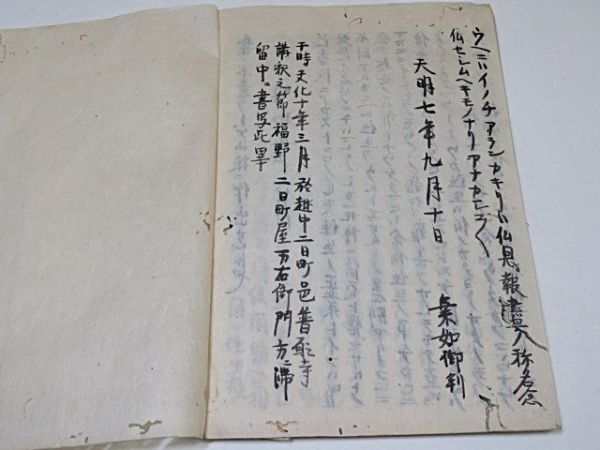 ウヘニハイノチアランカキリハ仏恩報謝ノ称名念
仏セシムヘキモノナリアナカシコ〱
天明七年九月十日
乗如御判
于時文化十年三月於越中二日町邑普願寺
講釈之節福野二日町屋万右衛門方ニ滞
留中書写此畢